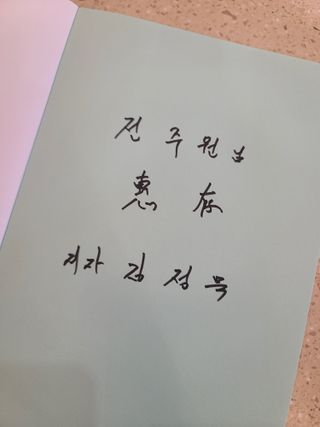 전 주 원 님
惠 存
저자 김 정 묵